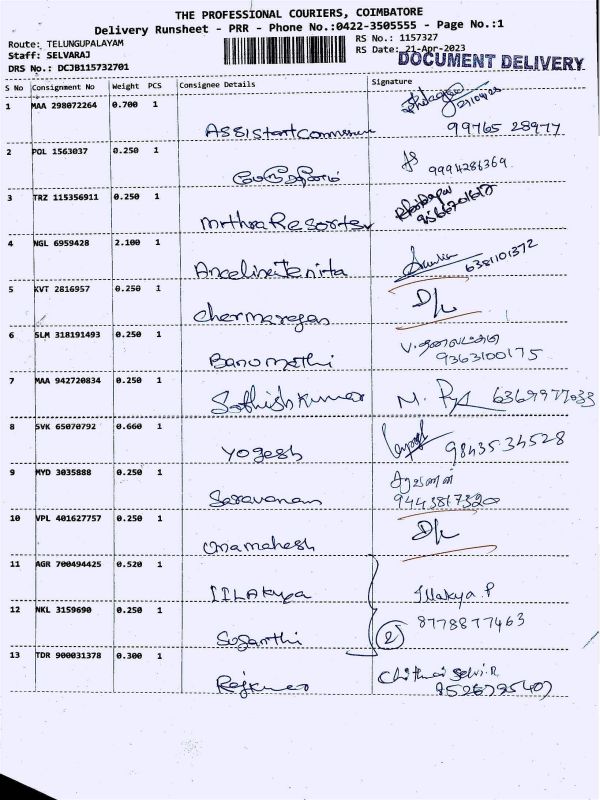 THE PROFESSIONAL COURIERS, COIMBATORE
Delivery Runsheet - PRR - Phone No.:0422-3505555 - Page No.:1
Route: TELUNGUPALAYAM
RS No.: 1157327
Staff: SELVARAJ
RS Date: 21-Apr-2023
DOCUMENT DELIVERY
DRS No.: DCJB115732701
S No Consignment No Weight PCS Consignee Details Signature
1 MAA 298072264 0.700 1
ASSistant Commissioner 99765 28977
2 POL 1563037 0.250 1
9994286369
3 TRZ 115356911 0.250 1
4 NGL 6959428 2.100 1
6381101372
5 KVT 2816957 0.250 1
D/L
6 SLM 318191493 0.250 1
Banumathi 9363100175
7 MAA 942720834 0.250 1
Sathishkumar 6369977033
8 SVK 65070792 0.660 1
Yogesh 98435 34528
9 MYD 3035888 0.250 1
சரவணன்
Saravanan 9443817320
10 VPL 401627757 0.250 1
D/L
Umamahesh
11 AGR 700494425 0.520 1
IILAkyya Illakya.P
12 NKL 3159690 0.250 1
8778877463
Suganthi 2
13 TDR 900031378 0.300 1
Rajkumar 9526795407